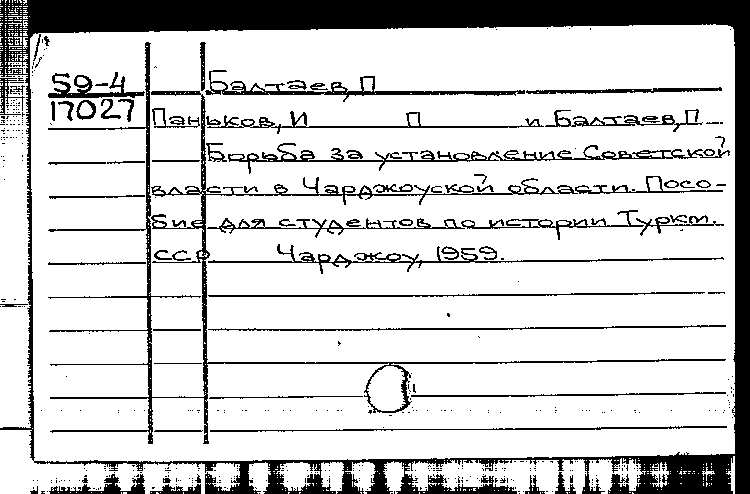 59-4 Балтаев, П
17027 Паньков, И П и Балтаев, П
Борьба за установление Советской
власти в Чарджоуской области. Посо-
бие для студентов по истории Туркм.
ССР. Чарджоу, 1959.